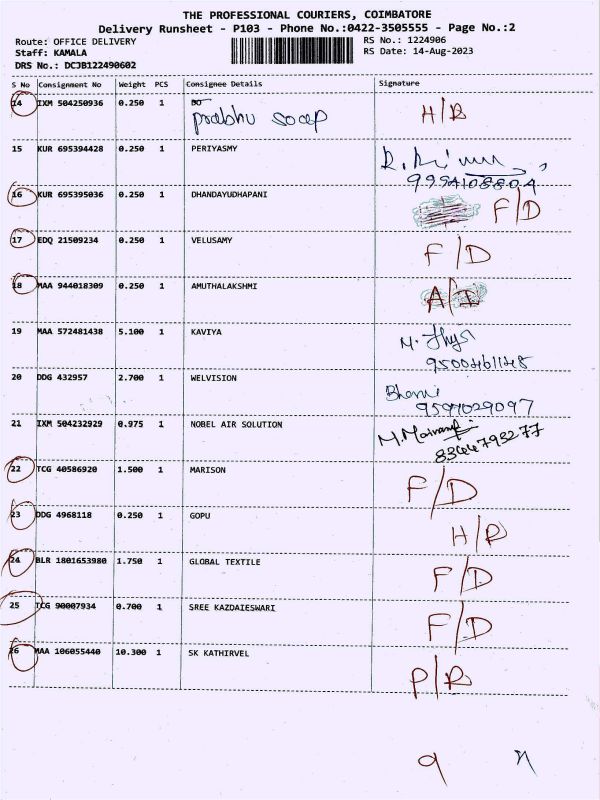 THE PROFESSIONAL COURIERS, COIMBATORE
Delivery Runsheet - P103 - Phone No.:0422-3505555 - Page No.:2
Route: OFFICE DELIVERY RS No.: 1224906
Staff: KAMALA RS Date: 14-Aug-2023
DRS No.: DCJB122490602
S No Consignment No Weight PCS Consignee Details Signature
14 IXM 504250936 0.250 1 prabhu soap H/R
15 KUR 695394428 0.250 1 PERIYASMY
16 KUR 695395036 0.250 1 DHANDAYUDHAPANI F/D
17 EDQ 21509234 0.250 1 VELUSAMY F/D
18 MAA 944018309 0.250 1 AMUTHALAKSHMI
19 MAA 572481438 5.100 1 KAVIYA
20 DDG 432957 2.700 1 WELVISION
9597029097
21 IXM 504232929 0.975 1 NOBEL AIR SOLUTION
8344793277
22 TCG 40586920 1.500 1 MARISON F/D
23 DDG 4968118 0.250 1 GOPU H/R
24 BLR 1801653980 1.750 1 GLOBAL TEXTILE F/D
25 TCG 90007934 0.700 1 SREE KAZDAIESWARI F/D
26 MAA 106055440 10.300 1 SK KATHIRVEL P/R
9